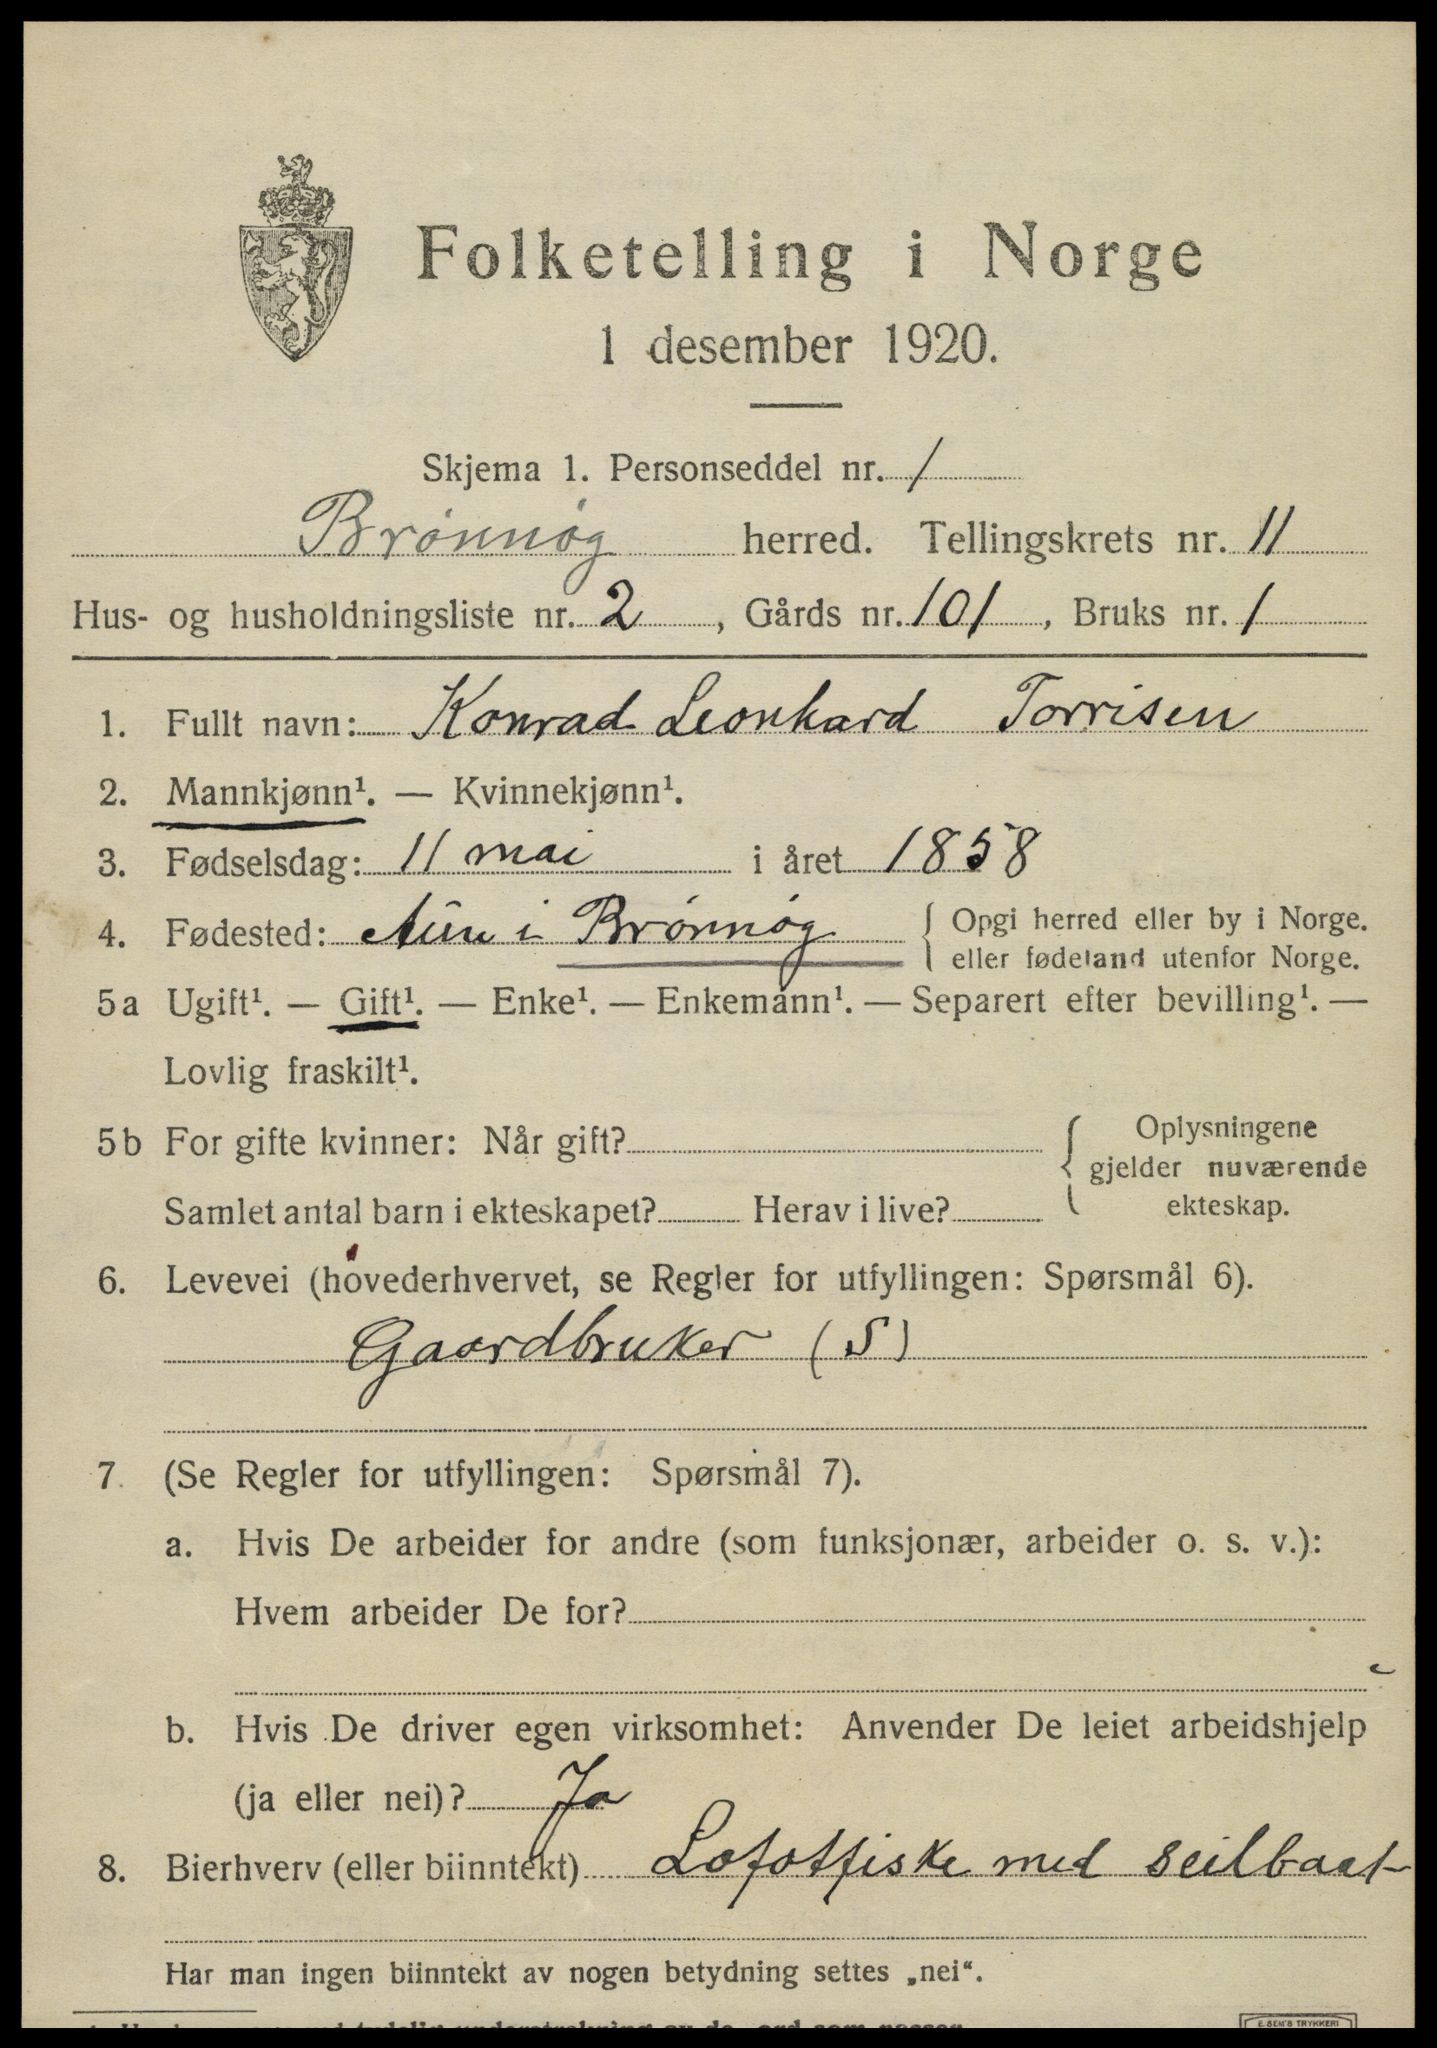 Folketelling i Norge
1 desember 1920.
Skjema 1. Personseddel nr. 1
Brönnög herred. Tellingskrets nr. 11
Hus- og husholdningsliste nr. 2, Gårds nr. 101, Bruks nr. 1
1. Fullt navn: Konrad Leonhard Torrisen
2. Mannkjønn¹. — Kvinnekjønn¹.
3. Fødselsdag: 11 mai i året 1858
4. Fødested: Aune i Brönnög { Opgi herred eller by i Norge.
eller fødeland utenfor Norge.
5a Ugift¹. — Gift¹. — Enke¹. — Enkemann¹. — Separert efter bevilling¹. —
Lovlig fraskilt¹.
5b For gifte kvinner: Når gift? { Oplysningene
gjelder nuværende
Samlet antal barn i ekteskapet? Herav i live? ekteskap.
6. Levevei (hovederhvervet, se Regler for utfyllingen: Spørsmål 6).
Gaardbruker (S)
7. (Se Regler for utfyllingen: Spørsmål 7).
a. Hvis De arbeider for andre (som funksjonær, arbeider o. s. v.):
Hvem arbeider De for?
b. Hvis De driver egen virksomhet: Anvender De leiet arbeidshjelp
(ja eller nei)? Ja
8. Bierhverv (eller biinntekt) Lofotfiske med seilbaat
Har man ingen biinntekt av nogen betydning settes „nei“.